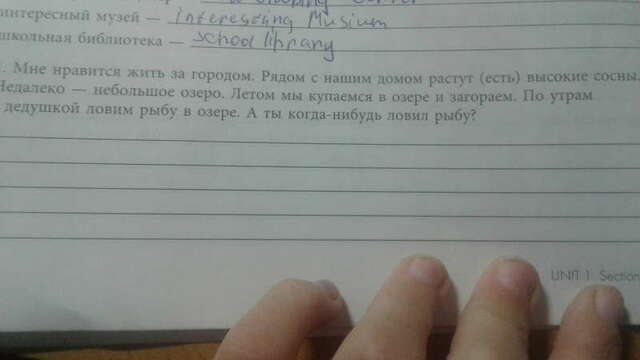 интересный музей — interesting Musium
школьная библиотека — school library
. Мне нравится жить за городом. Рядом с нашим домом растут (есть) высокие сосны.
Недалеко — небольшое озеро. Летом мы купаемся в озере и загораем. По утрам
дедушкой ловим рыбу в озере. А ты когда-нибудь ловил рыбу?
UNIT 1 Section